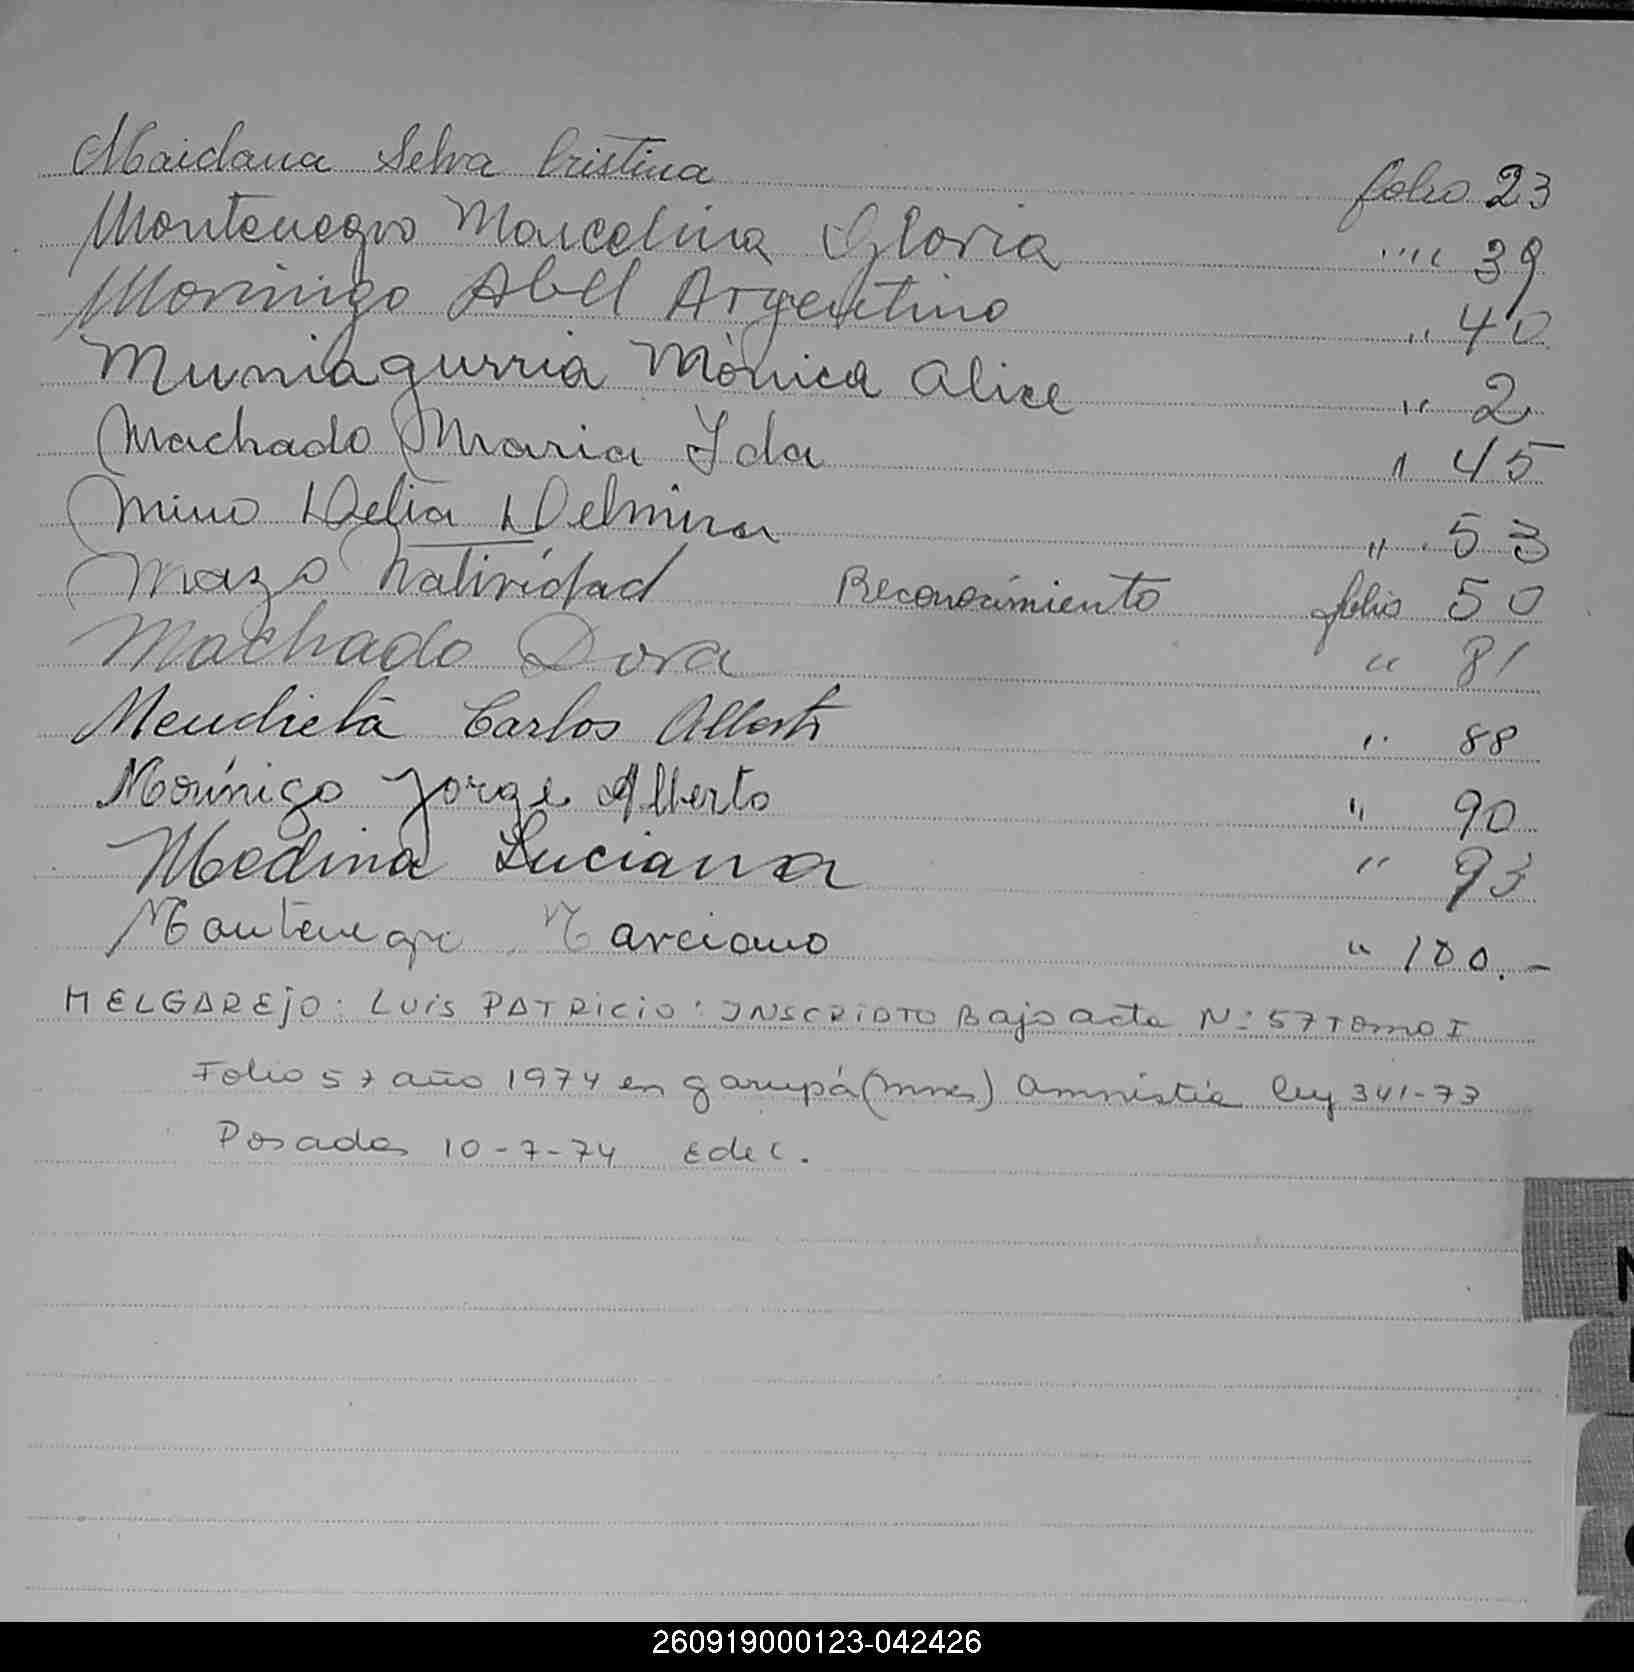 Maidana Selva Cristina folio 23
Montenegro Marcelina Gloria " " 39
Morinigo Abel Argentino " 40
Muniagurria Mónica Alice " 2
Machado Maria Ida " 45
Mino Delia Delmira " 53
Mazo Natividad Reconocimiento folio 50
Machado Dora " 81
Mendieta Carlos Alberto " 88
Morínigo Jorge Alberto " 90
Medina Luciana " 93
Montenegro Marciano " 100.-
MELGAREJO: Luis PATRicio: INSCRIPTO Bajo acta Nº 57 Tomo I
Folio 57 año 1974 en garupá (mnes) amnistia ley 341-73
Posadas 10-7-74 Edec.
N
260919000123-042426